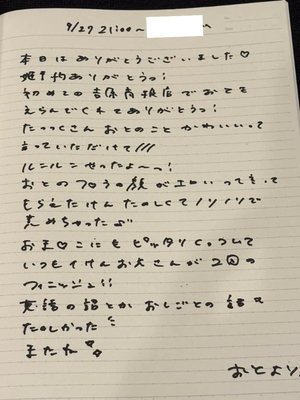 9/27 21:00〜
本日はありがとうございました♡
姫予約ありがとうっ!
初めての吉原
でおとを
えらんでくれてありがとうっ!
たっつくさん おとのこと かわいいって
言っていただけて///
ルンルンせったよ〜っ!
おとのフロうの顔がエロいって言って
もらえたけん たのしくてノリノリで
責めちゃった
おま♡こにもピッタリくっついて
いつもイけんお兄さんが2回の
フィニッシュ!!
英語の話とか おしごとの話も
たのしかった
またね♡
おとより